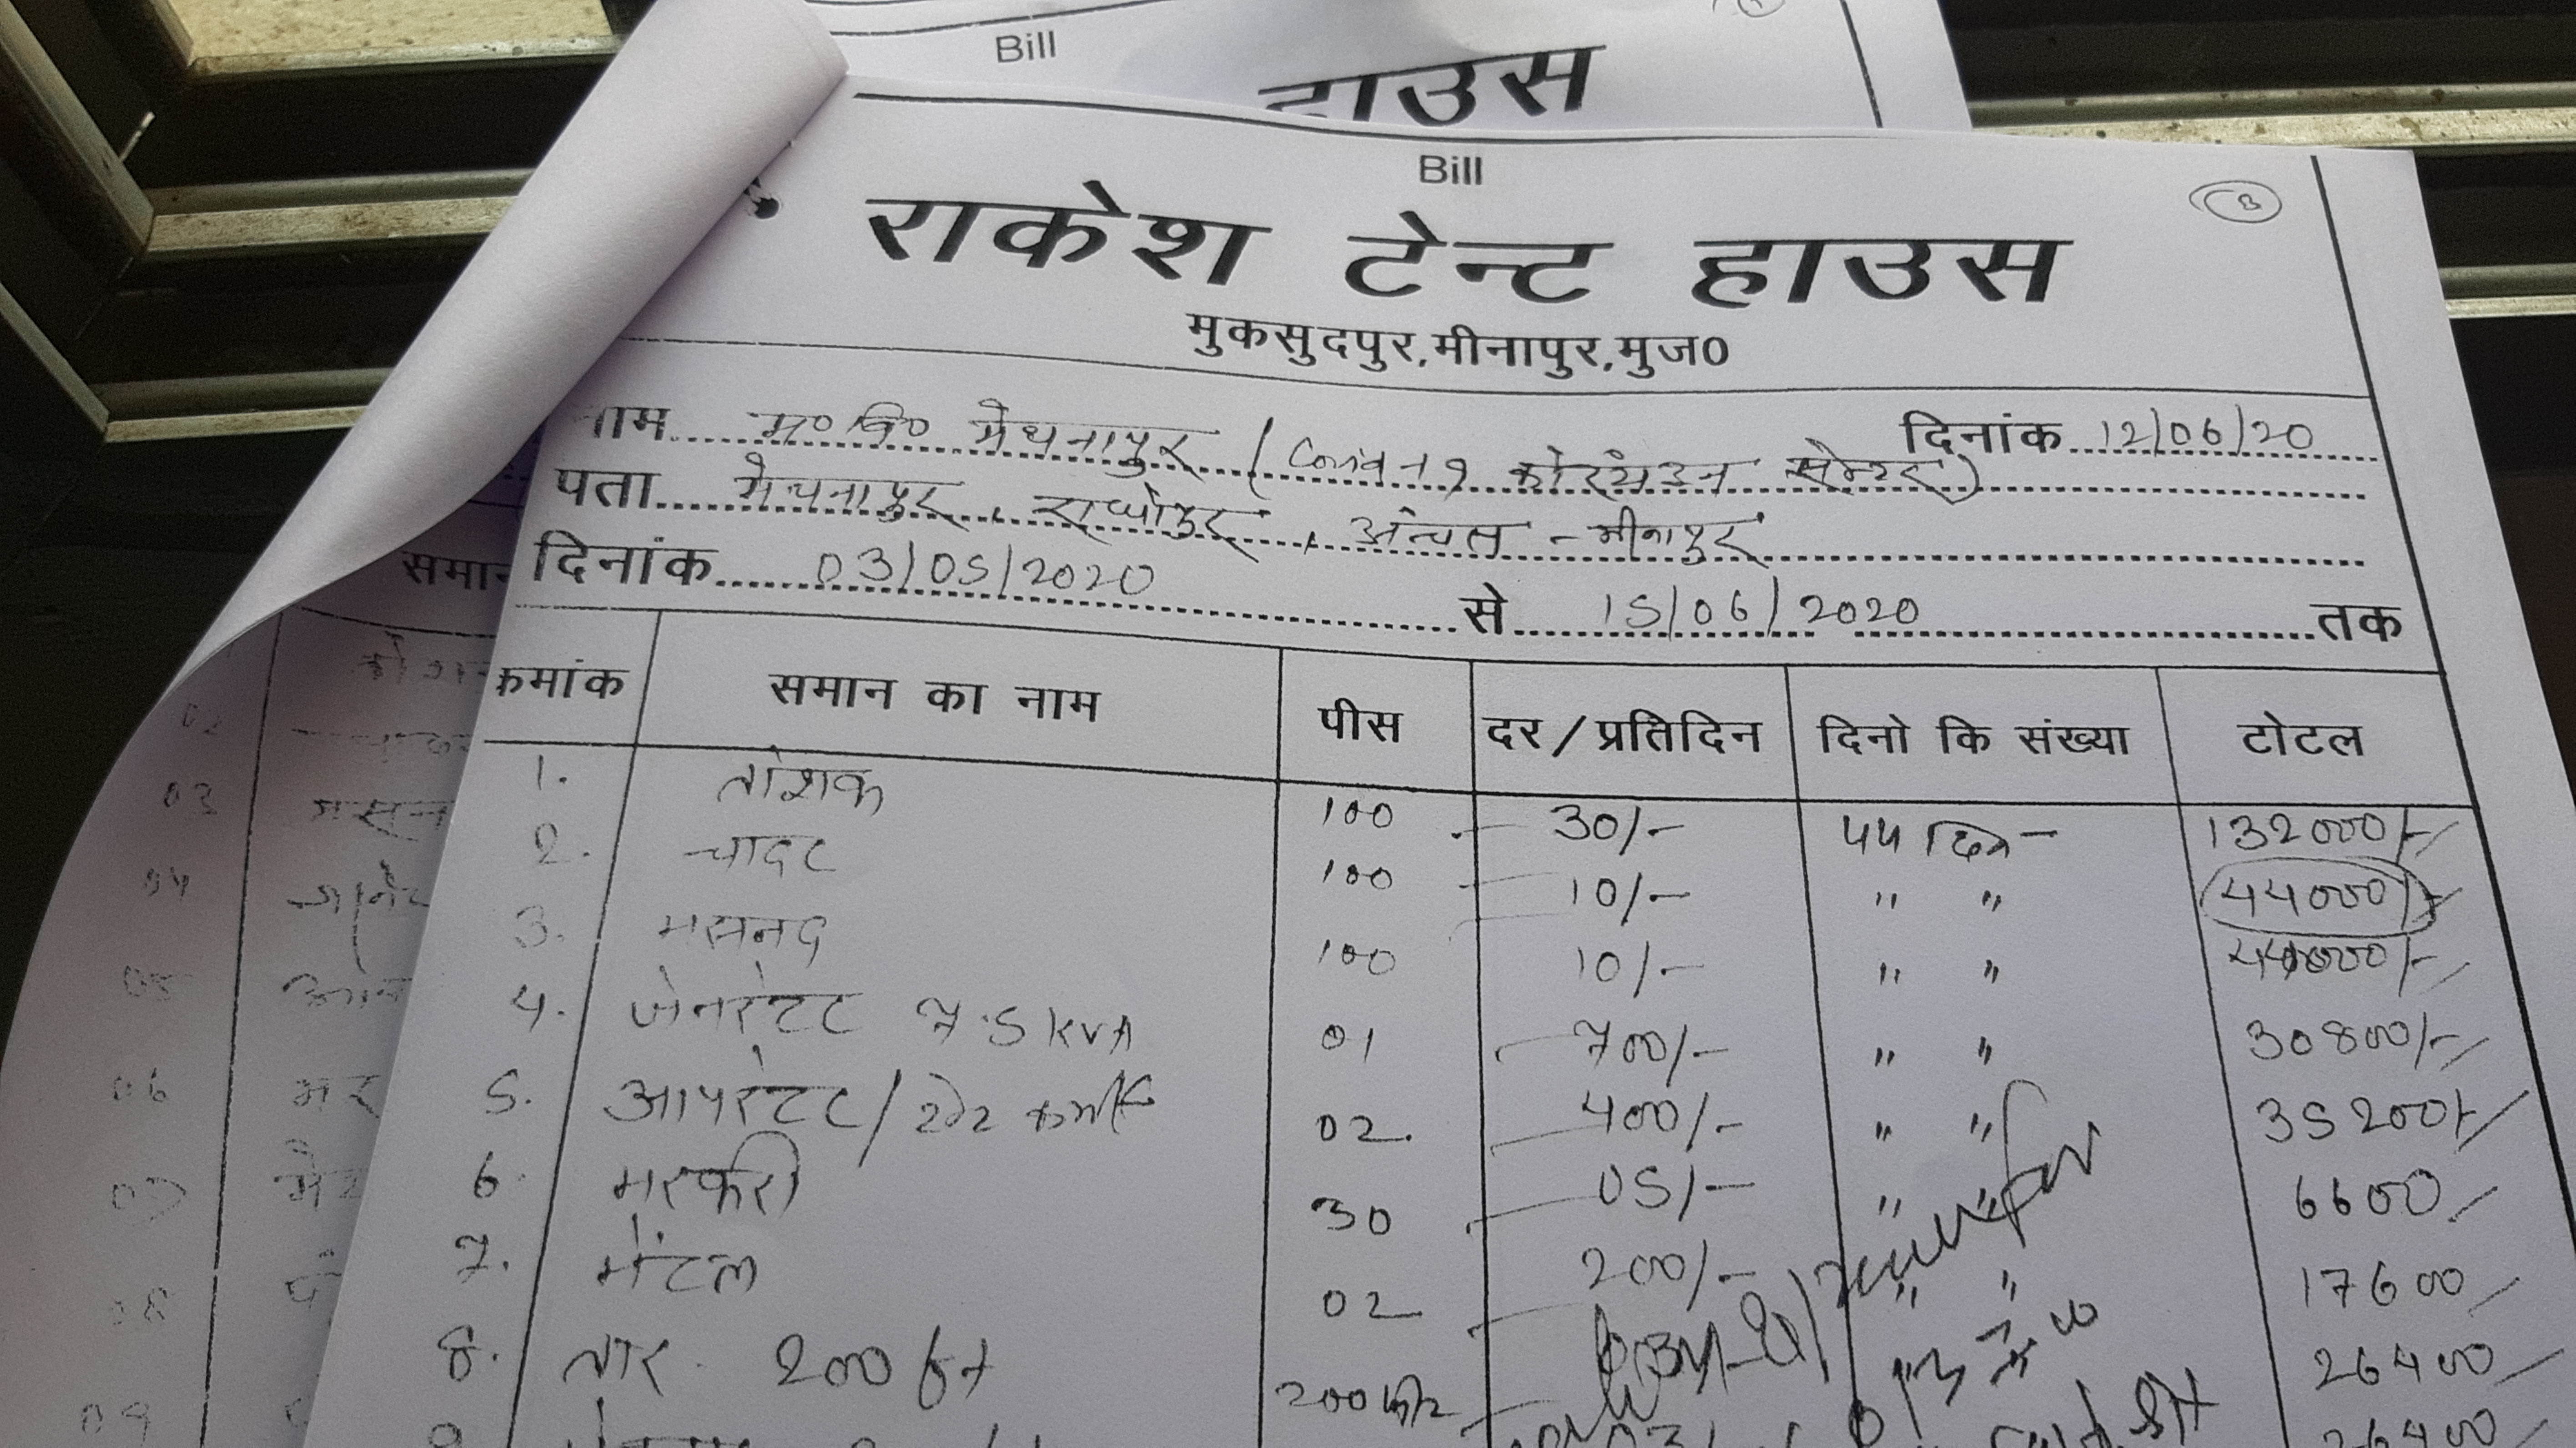 Bill
हाउस
Bill
राकेश टेन्ट हाउस
मुकसुदपुर,मीनापुर,मुज0
नाम म० वि० मेथनापुर (Covid-19 कोरंटाइन सेन्टर) दिनांक 12/06/20
पता मेथनापुर, राघोपुर, अंचल - मीनापुर
दिनांक 03/05/2020 से 15/06/2020 तक
क्रमांक समान का नाम पीस दर/प्रतिदिन दिनो कि संख्या टोटल
1. तोशक 100 30/- 44 दिन 132000/-
2. चादर 100 10/- " " 44000/-
3. मसनद 100 10/- " " 44000/-
4. जेनरेटर 7.5 KVA 01 700/- " " 30800/-
5. आपरेटर / टेन्ट कर्मी 02 400/- " " 35200/-
6. मरकरी 30 05/- " " 6600/-
7. मेंटल 02 200/- " " 17600/-
8. तार 200 ft 200 26400/-
26400/-
समान
02
03 मसन
04
05
06
07
08
09